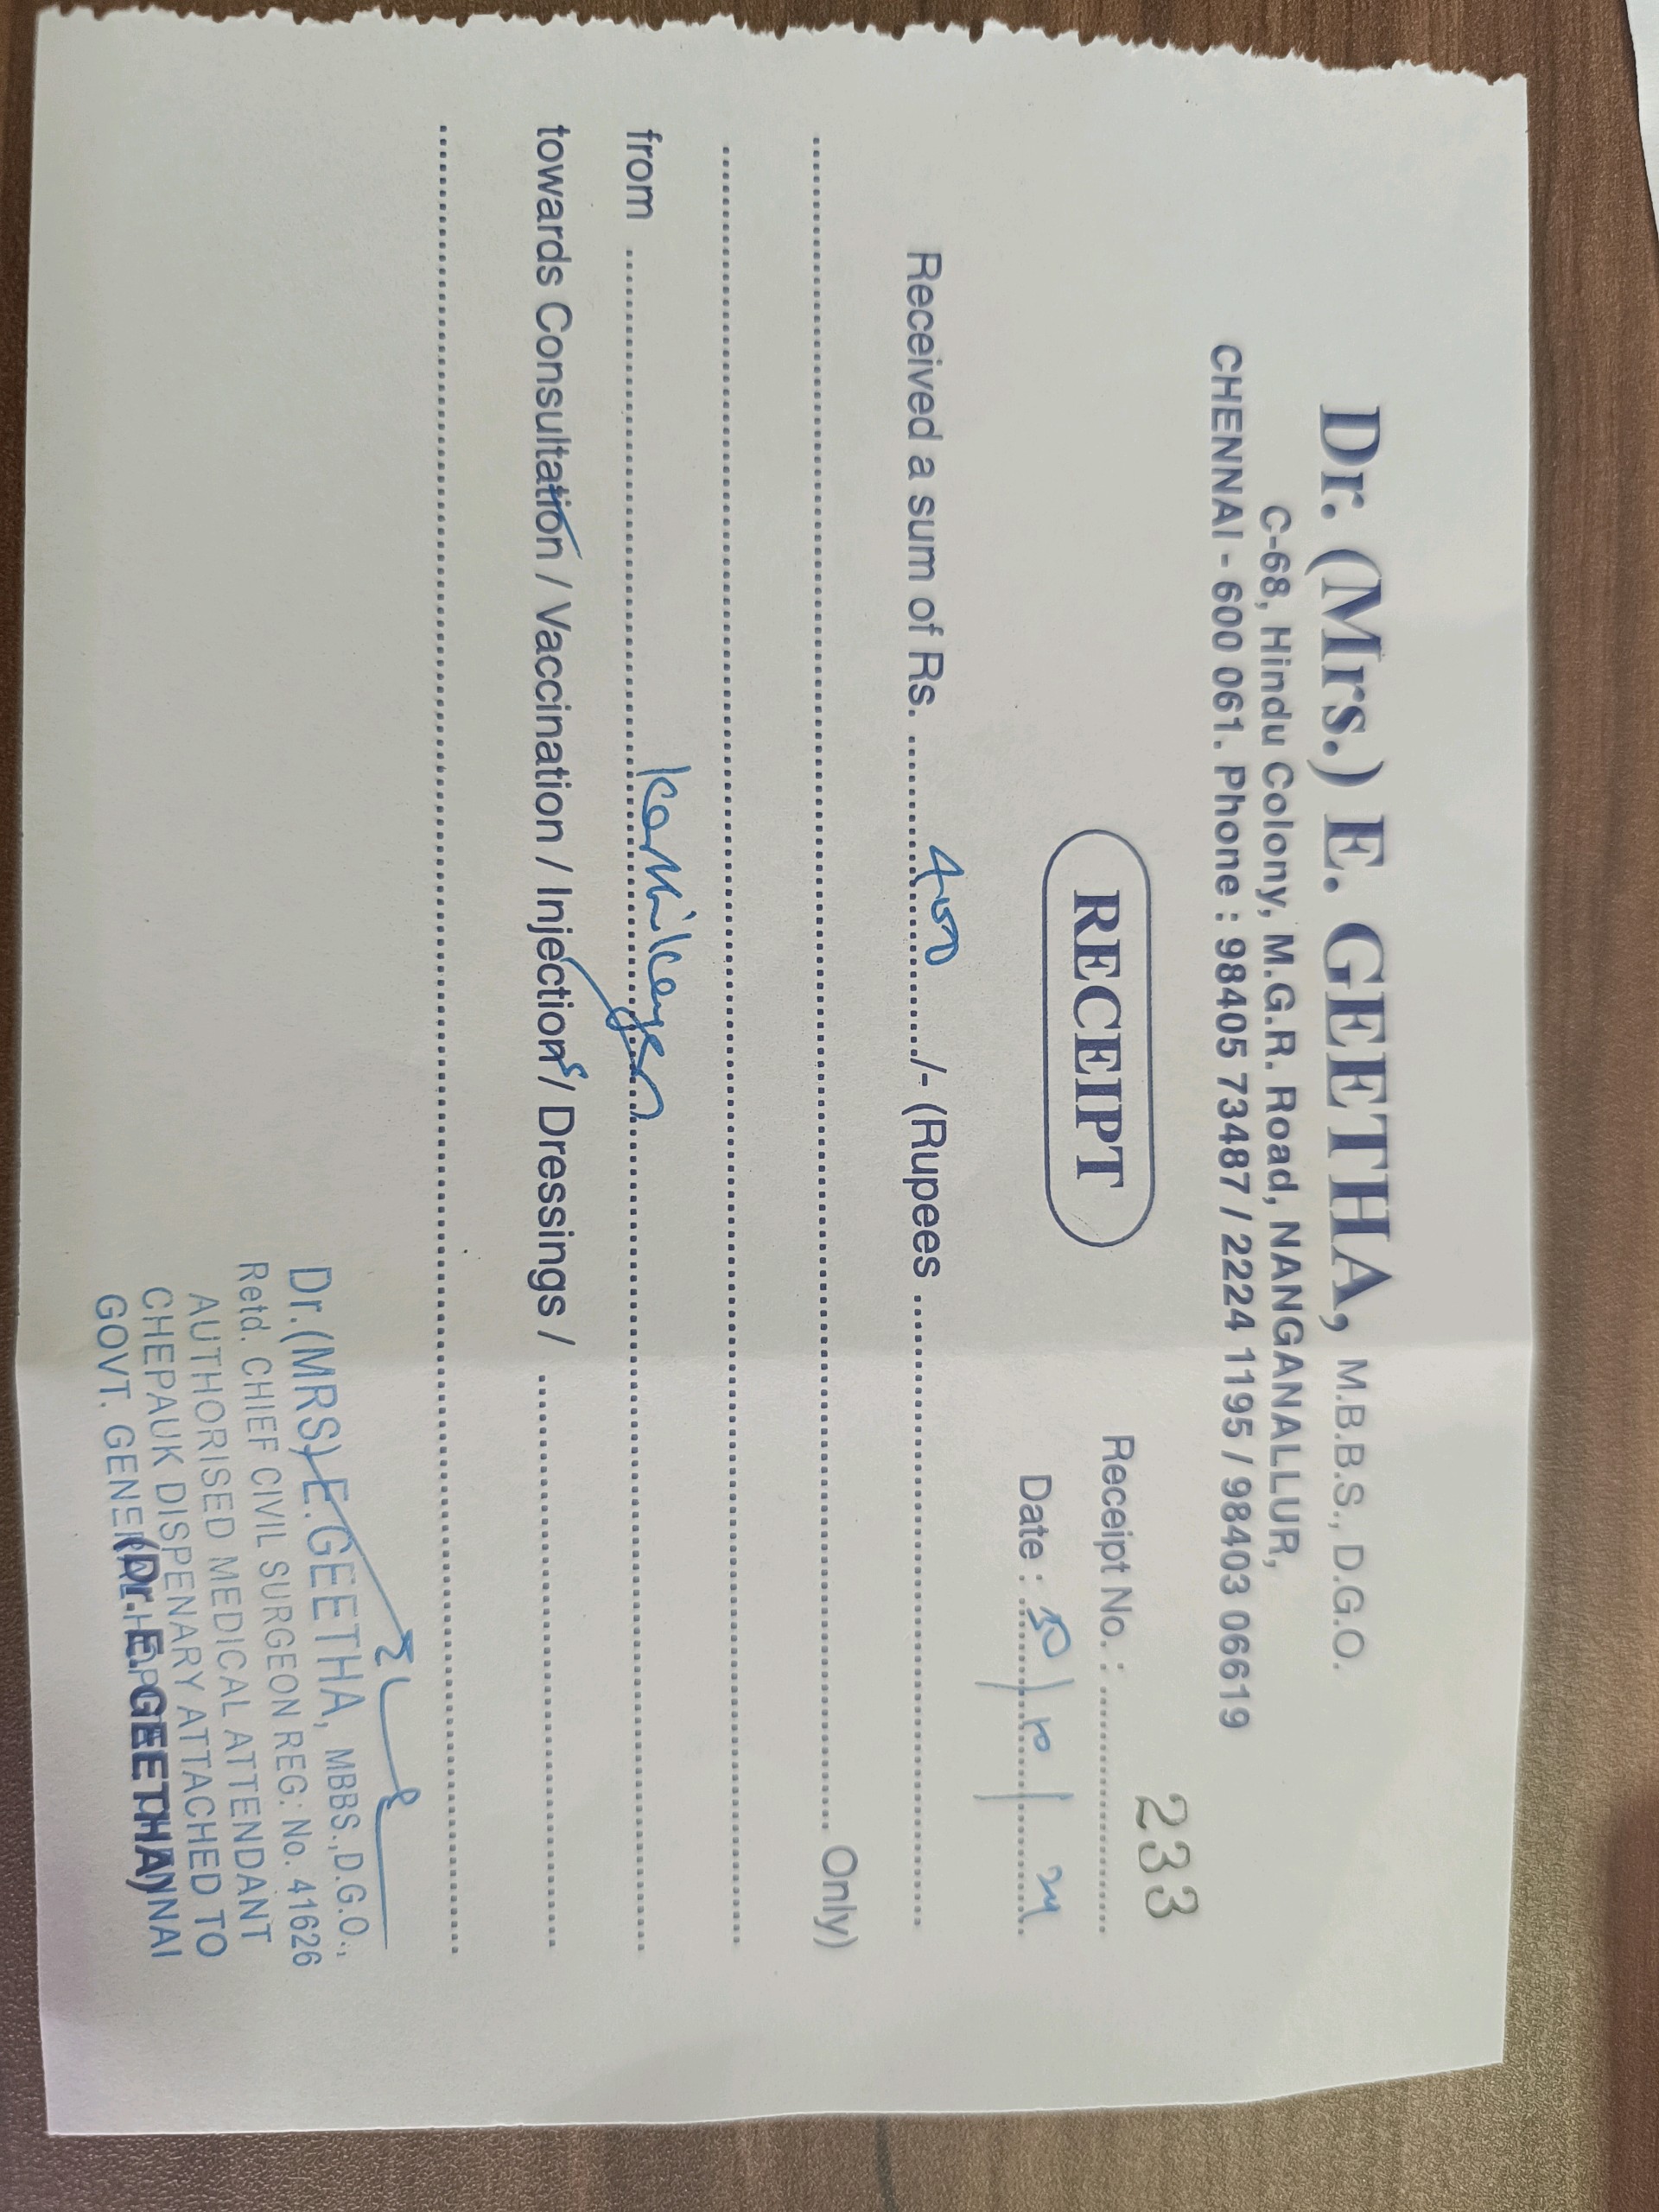 Dr. (Mrs.) E. GEETHA, M.B.B.S., D.G.O.
C-68, Hindu Colony, M.G.R. Road, NANGANALLUR,
CHENNAI - 600 061. Phone : 98405 73487 / 2224 1195 / 98403 06619
233
RECEIPT
Receipt No. :
Date :
Received a sum of Rs. 400 /- (Rupees
Only)
from Karthikeyan
towards Consultation / Vaccination / Injections / Dressings /
Dr.(MRS) E.GEETHA, MBBS.,D.G.O.,
Retd. CHIEF CIVIL SURGEON REG: No. 41626
AUTHORISED MEDICAL ATTENDANT
CHEPAUK DISPENARY ATTACHED TO
GOVT. GENERAL
(Dr. E. GEETHA)